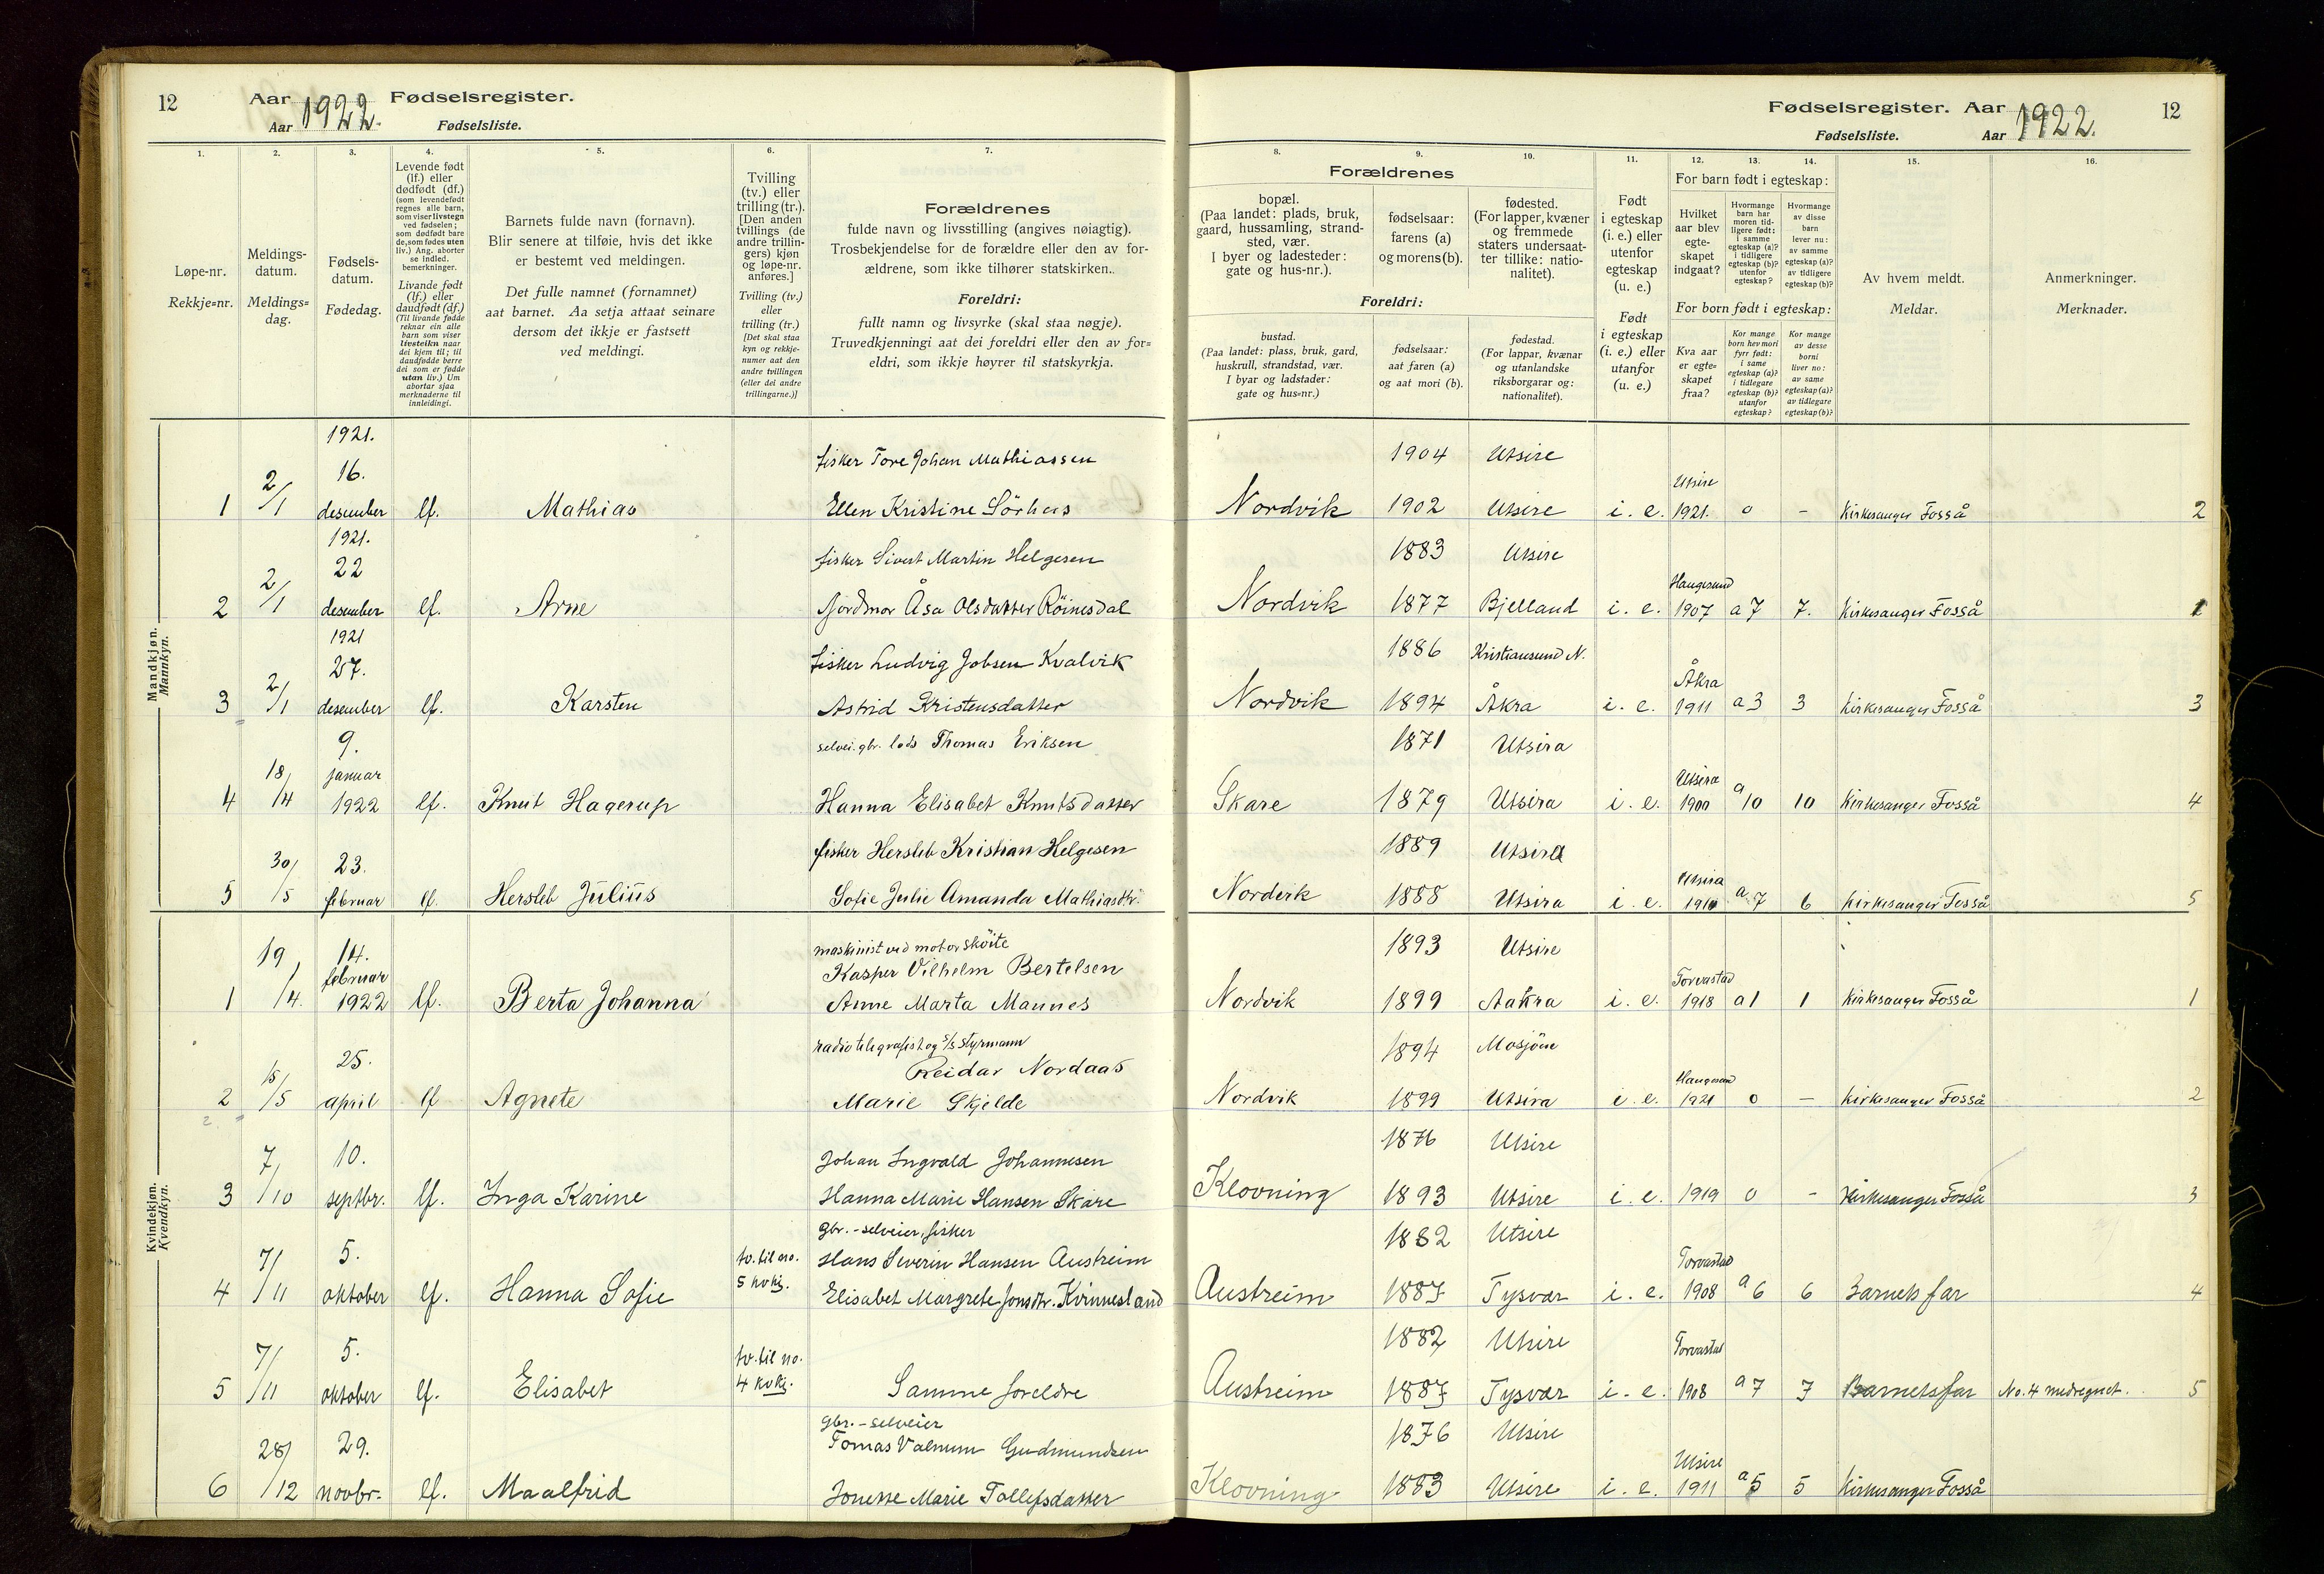 12
Aar 1922. Fødselsregister.
Aar Fødselsliste.
Fødselsregister. Aar 1922. 12
Fødselsliste. Aar
1.
Løpe-nr.
Rekkje=nr.
2.
Meldings-
datum.
Meldings=
dag.
3.
Fødsels-
datum.
Fødedag.
4.
Levende født
(lf.) eller
dødfødt (df.)
(som levendefødt
regnes alle barn,
som viser livstegn
ved fødselen;
som dødfødt bare
de, som fødes uten
liv.) Ang. aborter
se indled.
bemerkninger.
Livande født
(lf.) eller
daudfødt (df.)
(Til livande fødde
reknar ein alle
barn som viser
livsteikn naar
dei kjem til; til
daudfødde berre
dei som er fødde
utan liv.) Um
abortar sjaa
merknaderne til
innleidingi.
5.
Barnets fulde navn (fornavn).
Blir senere at tilføie, hvis det ikke
er bestemt ved meldingen.
Det fulle namnet (fornamnet)
aat barnet. Aa setja attaat seinare
dersom det ikkje er fastsett
ved meldingi.
6.
Tvilling
(tv.) eller
trilling (tr.).
[Den anden
tvillings (de
andre trillin-
gers) kjøn
og løpe-nr.
anføres.]
Tvilling (tv.)
eller
trilling (tr.)
[Det skal staa
kyn og rekkje-
numer aat den
andre tvillingen
(eller dei andre
trillingarne.)]
7.
Forældrenes
fulde navn og livsstilling (angives nøiagtig).
Trosbekjendelse for de forældre eller den av for-
ældrene, som ikke tilhører statskirken.
Foreldri:
fullt namn og livsyrke (skal staa nøgje).
Truvedkjenningi aat dei foreldri eller den av for=
eldri, som ikkje høyrer til statskyrkja.
Forældrenes
8.
bopæl.
(Paa landet: plads, bruk,
gaard, hussamling, strand-
sted, vær.
I byer og ladesteder:
gate og hus-nr.).
9.
fødselsaar:
farens (a)
og morens (b).
10.
fødested.
(For lapper, kvæner
og fremmede
staters undersaat-
ter tillike: natio-
nalitet).
Foreldri:
bustad.
(Paa landet: plass, bruk, gard,
huskrull, strandstad, vær.
I byar og ladstader:
gate og hus=nr.)
fødselsaar:
aat faren (a)
og aat mori (b).
fødestad.
(For lappar, kvænar
og utanlandske
riksborgarar og:
nationalitet).
11.
Født
i egteskap
(i. e.) eller
utenfor
egteskap
(u. e.)
Født
i egteskap
(i. e.) eller
utanfor
(u. e.)
12. 13. 14.
For barn født i egteskap:
Hvilket
aar blev
egte-
skapet
indgaat?
Hvormange
barn har
moren tid-
ligere født:
i samme
egteskap (a)?
i tidligere
egteskap (b)?
utenfor
egteskap?
Hvormange
av disse
barn
lever nu:
av samme
egteskap (a)?
av tidligere
egteskap (b)?
For born født i egteskap:
Kva aar
er egte-
skapet
fraa?
Kor mange
born hev mori
fyrr født:
i same
egteskap (a)?
i tidlegare
egteskap (b)?
utanfor
egteskap?
Kor mange
av desse
borni
liver no:
av same
egteskap (a)?
av tidlegare
egteskap (b)?
15.
Av hvem meldt.
Meldar.
16.
Anmerkninger.
Merknader.
Mandkjøn.
Mannkyn.
1921. fisker Tore Johan Mathiassen 1904 Utsire
16. Utsire
1 2/1 desember lf. Mathias Ellen Kristine Sörhus Nordvik 1902 Utsire i. e. 1921. 0 - Kirkesanger Fosså 2
1921. fisker Sivert Martin Helgesen 1883 Utsire
22 Haugesund
2 2/1 desember lf. Arne Jordmor Åsa Olsdatter Röinesdal Nordvik 1877 Bjelland i. e. 1907 a 7 7. Kirkesanger Fosså 1
1921 fisker Ludvig Jobsen Kvalvik 1886 Kristiansund N.
27. Åkra
3 2/1 desember lf. Karsten Astrid Kristensdatter Nordvik 1894 Åkra i. e. 1911 a 3 3 Kirkesanger Fosså 3
9. selvei. gbr. lods Thomas Eriksen 1871 Utsira
januar Utsira
4 18/4 1922 lf. Knut Hagerup Hanna Elisabet Knutsdatter Skare 1879 Utsira i. e. 1900 a 10 10 Kirkesanger Fosså 4
23. fisker Hersleb Kristian Helgesen 1889 Utsira
Utsira
5 30/5 februar lf. Hersleb Julius Sofie Julie Amanda Mathiasdtr. Nordvik 1888 Utsira i. e. 1910 a. 7 6 Kirkesanger Fosså 5
Kvindekjøn.
Kvendkyn.
14. maskinist ved motorsköite 1893 Utsire
februar Kasper Vilhelm Bertelsen Torvastad
1 19/4. 1922 lf. Berta Johanna Anne Marta Mannes Nordvik 1899 Aakra i. e. 1918 a 1 1 Kirkesanger Fosså 1
25. radiotelegrafist og s/s styrmann 1894 Mosjöen
Reidar Nordaas Haugesund
2 15/5 april lf Agnete Marie Skjelde Nordvik 1899 Utsira i. e. 1921 0 - Kirkesanger Fosså 2
10. Johan Ingvald Johannesen 1876 Utsire
3 7/10 septbr. lf. Inga Karine Hanna Marie Hansen Skare Klovning 1893 Utsire i. e. 1919 0 - Kirkesanger Fosså 3
gbr. - selveier, fisker 1882 Utsire
5. tv. til no. Hans Severin Hansen Austreim Torvastad
4 7/11 oktober lf. Hanna Sofie 5 kvkj. Elisabet Margrete Jonsdtr. Kvinnesland Austreim 1887 Tysvær i. e. 1908 a 6 6 Barnets far 4
5. tv. til no. 1882 Utsire Torvastad
5 7/11 oktober lf. Elisabet 4 kvkj. Samme foreldre Austreim 1887 Tysvær i. e. 1908 a 7 7 Barnets far No. 4 medregnet. 5
gbr. - selveier
29. Tomas Valnum Gudmundsen 1876 Utsire
Utsire
6 28/12 novbr. lf. Maalfrid Jonette Marie Tollefsdatter Klovning 1883 Utsire i. e. 1911 a 5 5 Kirkesanger Fosså